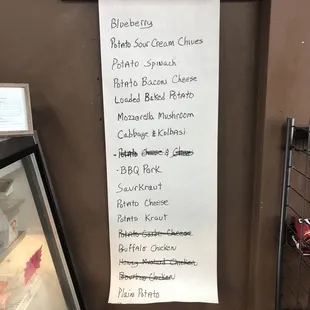 Blueberry
Potato Sour Cream Chives
Potato Spinach
Potato Bacon Cheese
Loaded Baked Potato
Mozzarella Mushroom
Cabbage & Kolbasi
- Potato Cheese & Chives
- BBQ Pork
SaurKraut
Potato Cheese
Potato Kraut
Potato Garlic Cheese
Buffalo Chicken
Honey Mustard Chicken
Bourbon Chicken
Plain Potato